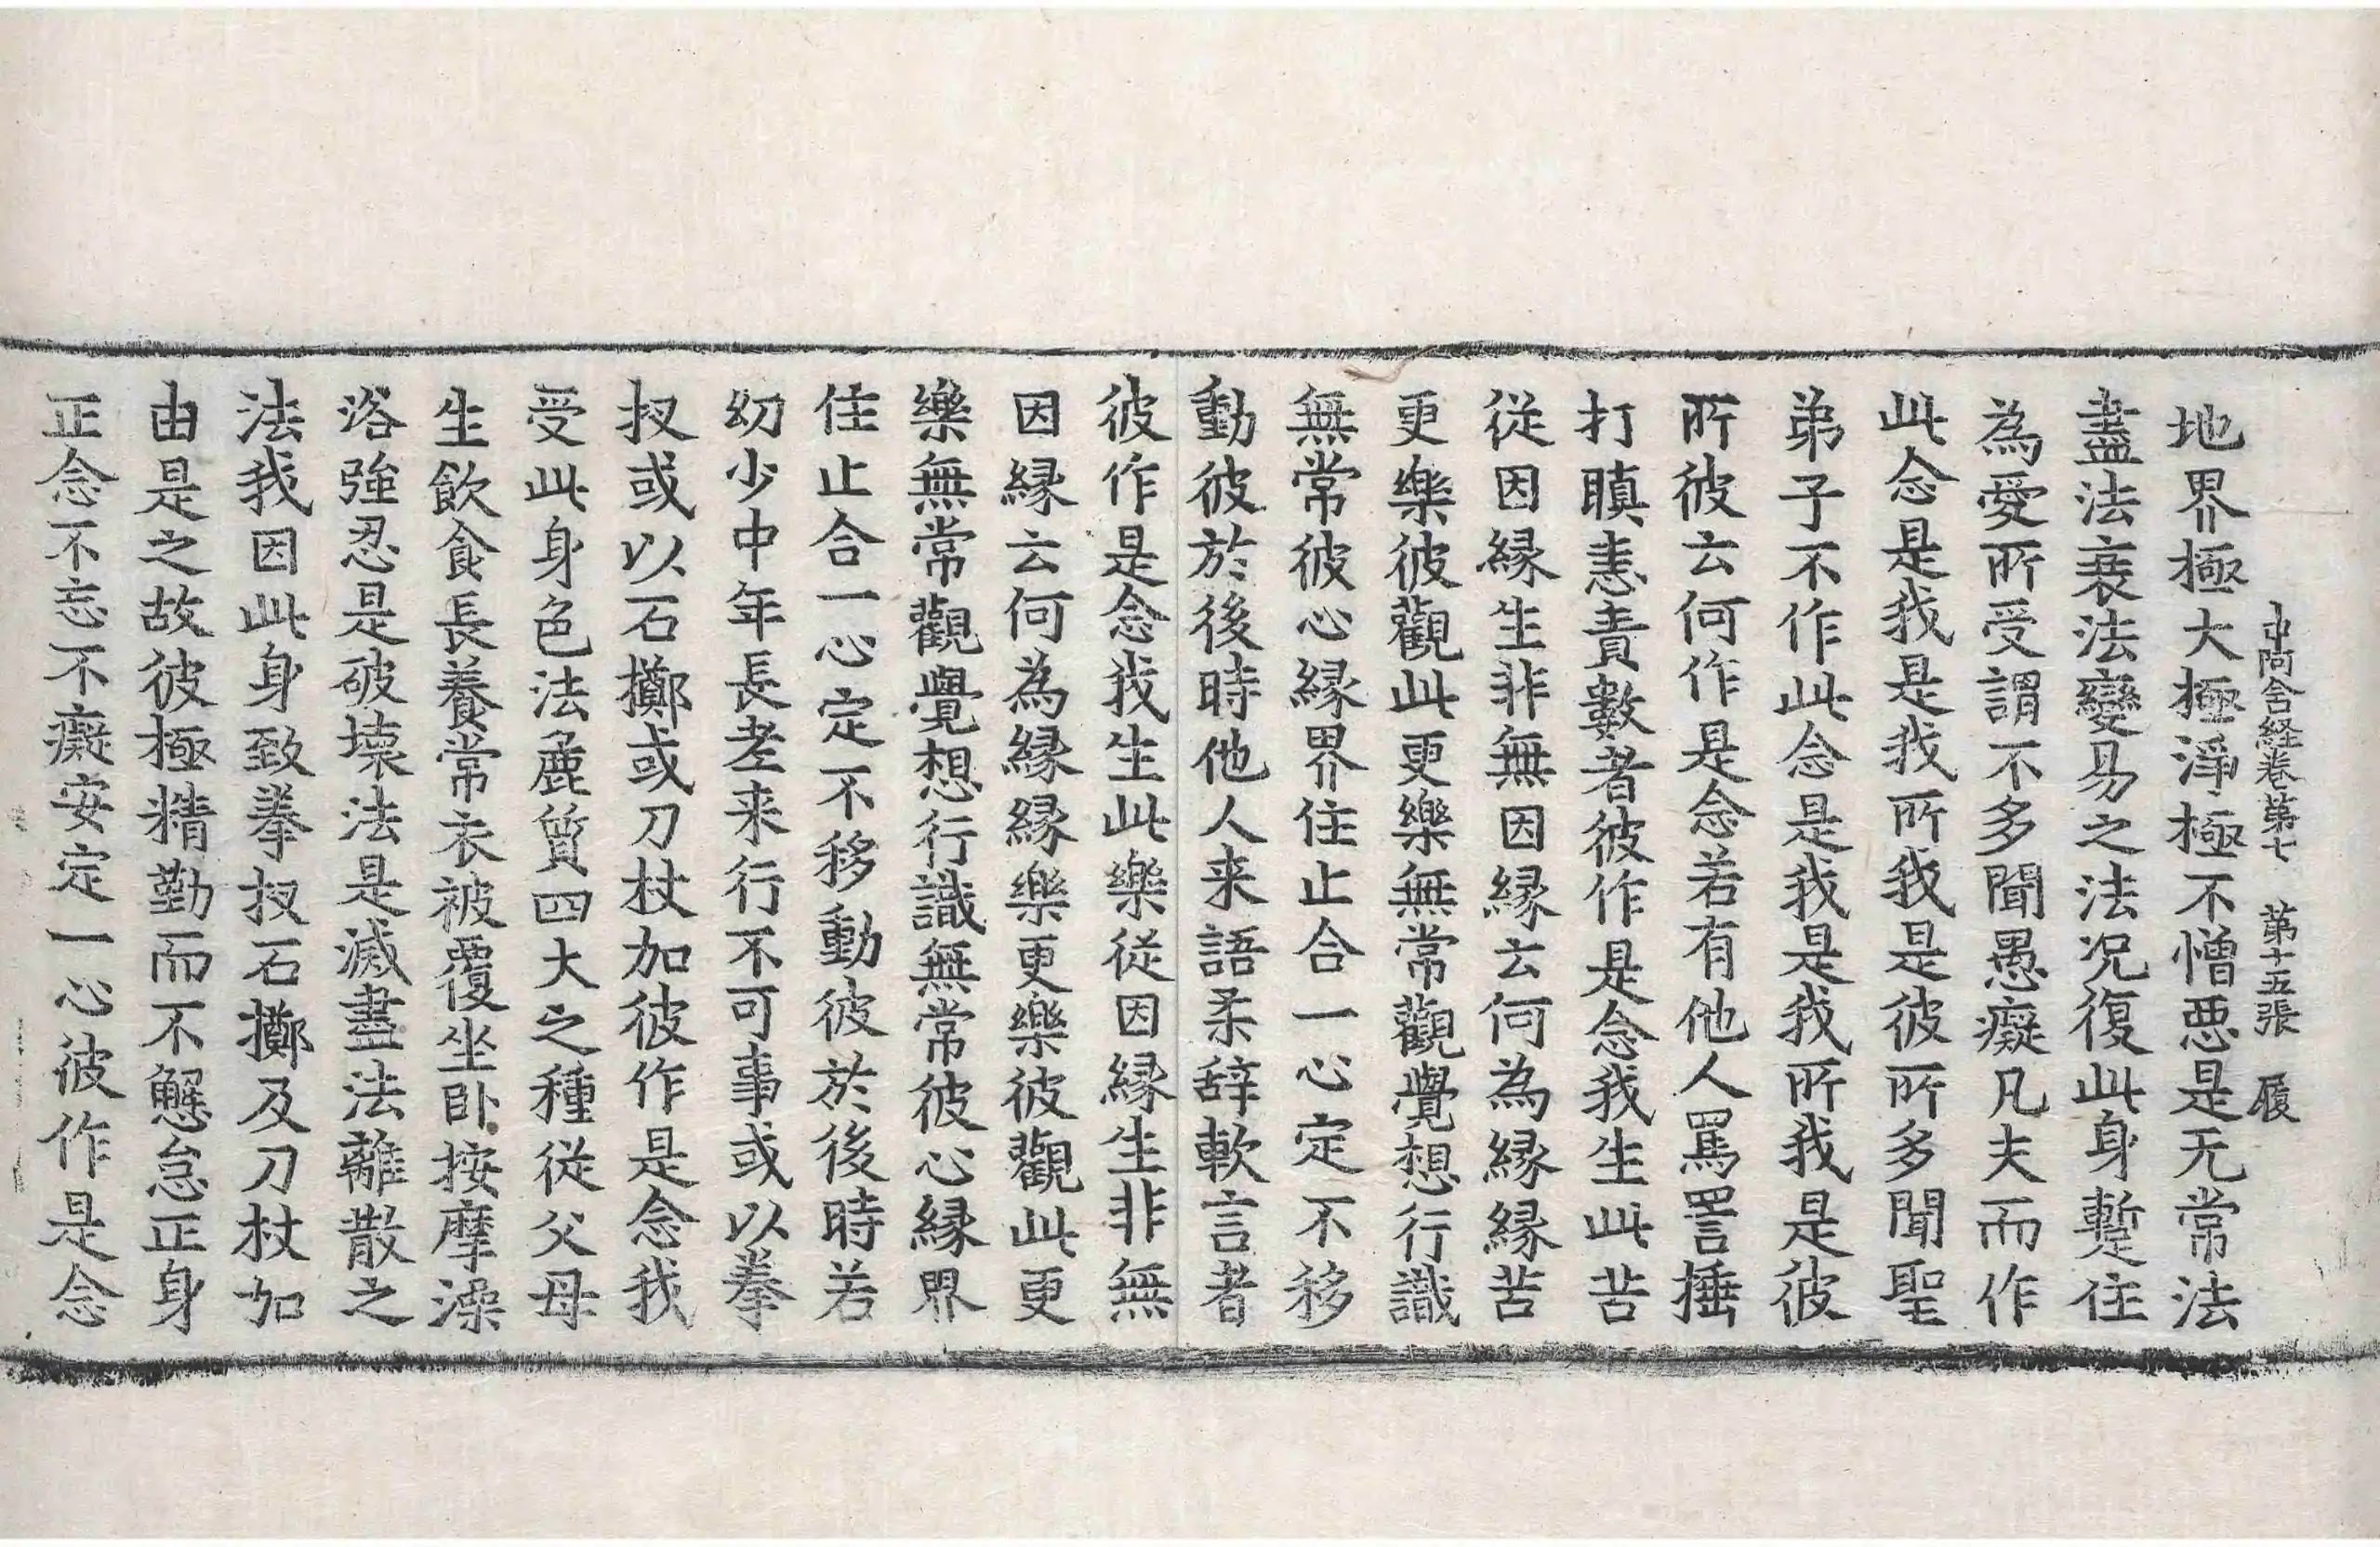 中阿含経卷第七　第十五張　履
地界極大極淨極不憎惡是无常法
盡法衰法變易之法況復此身暫住
為愛所受謂不多聞愚癡凡夫而作
此念是我是我所我是彼所多聞聖
弟子不作此念是我是我所我是彼
所彼云何作是念若有他人罵詈捶
打瞋恚責數者彼作是念我生此苦
從因縁生非無因縁云何為縁縁苦
更樂彼觀此更樂無常觀覺想行識
無常彼心縁界住止合一心定不移
動彼於後時他人来語柔辞軟言者
彼作是念我生此樂從因縁生非無
因縁云何為縁縁樂更樂彼觀此更
樂無常觀覺想行識無常彼心縁界
住止合一心定不移動彼於後時若
幼少中年長老来行不可事或以拳
扠或以石擲或刀杖加彼作是念我
受此身色法麁質四大之種從父母
生飲食長養常衣被覆坐卧按摩澡
浴強忍是破壞法是滅盡法離散之
法我因此身致拳扠石擲及刀杖加
由是之故彼極精勤而不懈怠正身
正念不忘不癡安定一心彼作是念